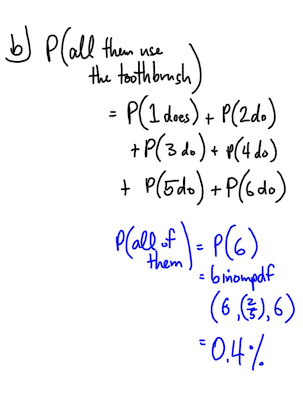 b) P(all them use
the toothbrush)
= P(1 does) + P(2 do)
+ P(3 do) + P(4 do)
+ P(5 do) + P(6 do)
P(all of them) = P(6)
= binompdf
(6, (2/5), 6)
= 0.4%